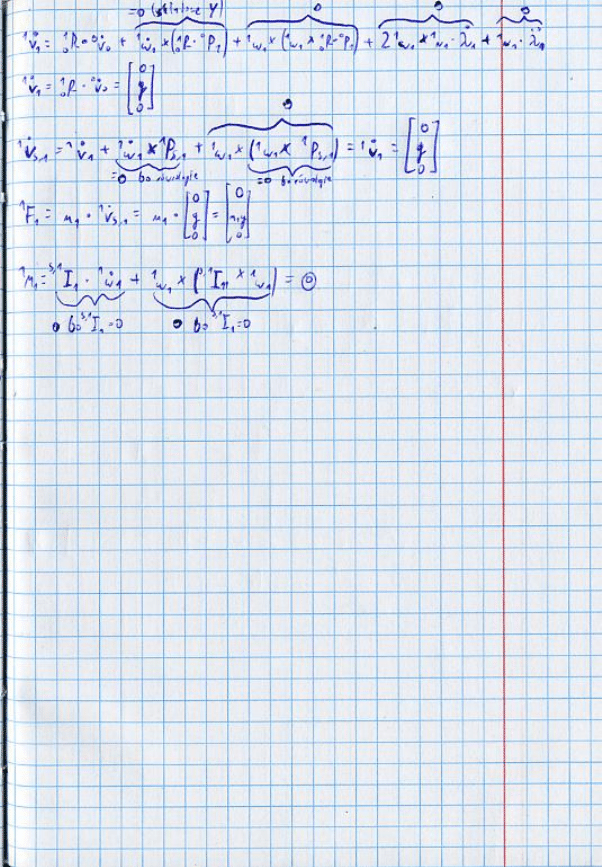 =0 Y) 0 0 0
¹v̇₁ = ¹₀R · ⁰v̇₀ + ¹ẇ₁ × (¹₀R · ⁰P₁) + ¹w₁ × (¹w₁ × ¹₀R · ⁰P₁) + 2 ¹w₁ × ¹n₁ · λ̇₁ + ¹n₁ · λ̈₁
¹v̇₁ = ¹₀R · ⁰v̇₀ = [0 g 0]
0
¹v̇s,₁ = ¹v̇₁ + ¹ẇ₁ × ¹Ps,₁ + ¹w₁ × (¹w₁ × ¹Ps,₁) = ¹v̇₁ = [0 g 0]
=0 bo równoległe =0 bo równoległe
¹F₁ = m₁ · ¹v̇s,₁ = m₁ · [0 g 0] = [0 m₁g 0]
¹n₁ = ˢ'¹I₁ · ¹ẇ₁ + ¹w₁ × (ˢ'¹I₁ × ¹w₁) = 0
0 bo ˢ'¹I₁ = 0 0 bo ˢ'¹I₁ = 0